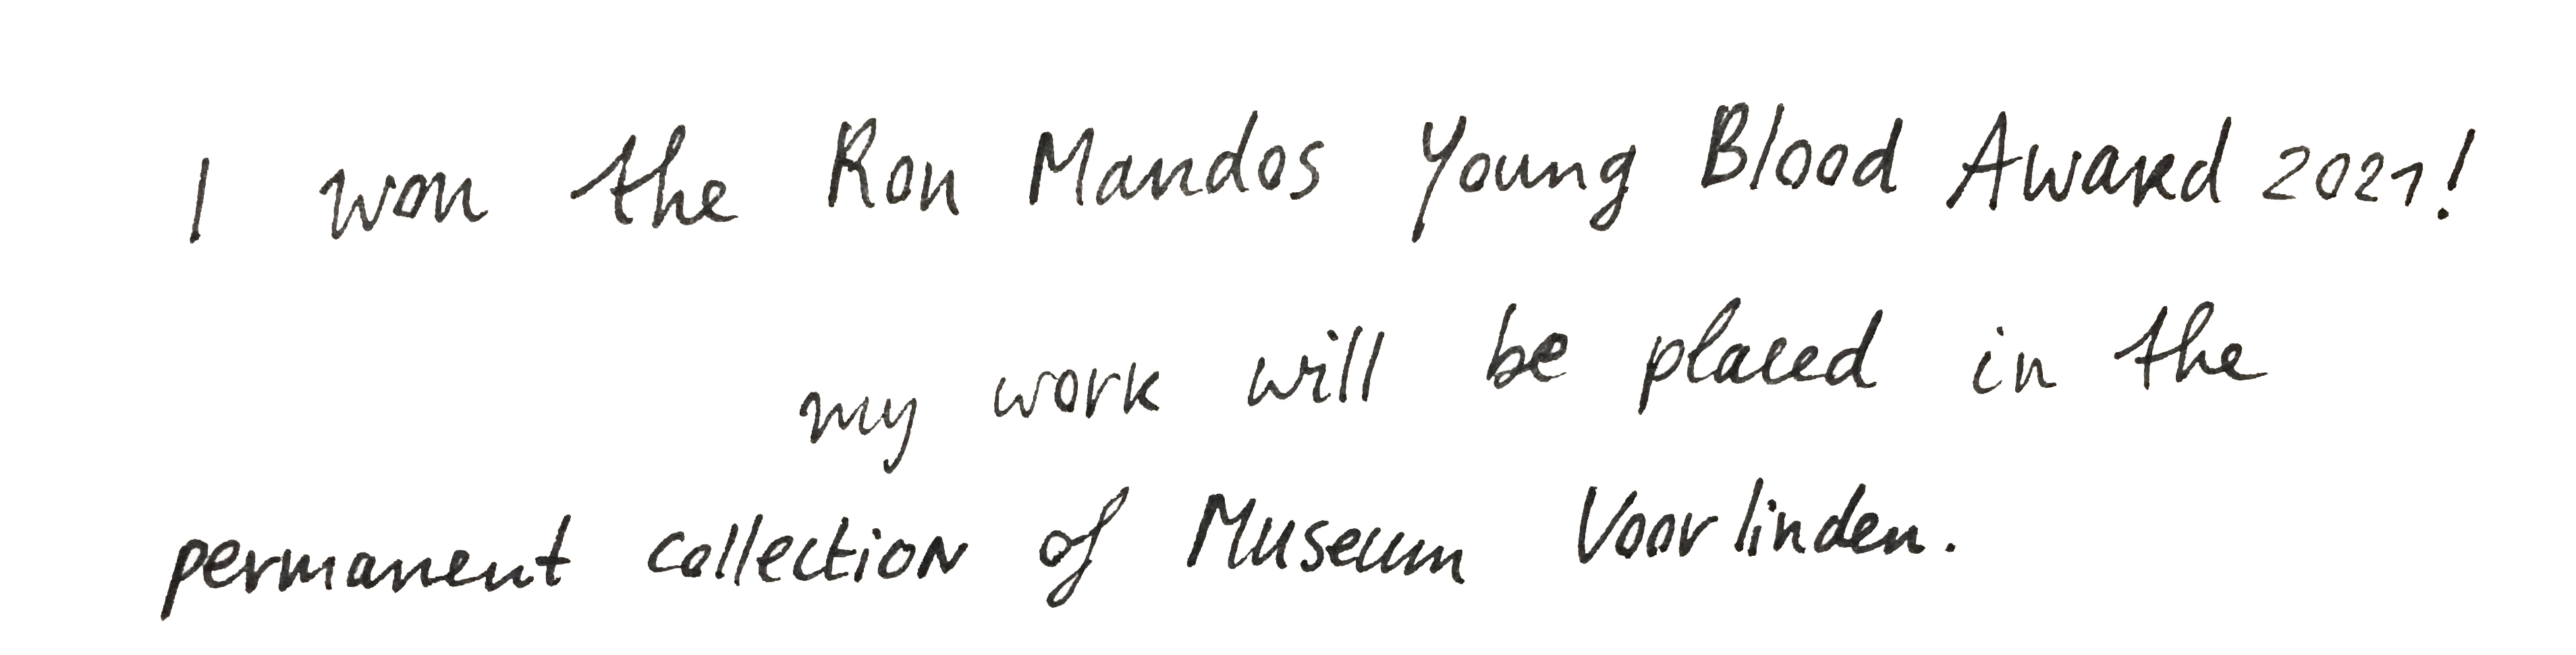 I won the Ron Mandos Young Blood Award 2021!
my work will be placed in the
permanent collection of Museum Voorlinden.